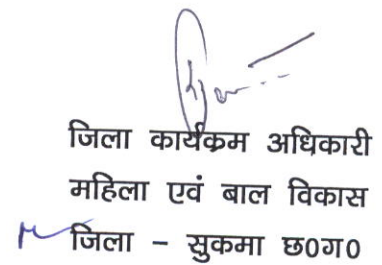 जिला कार्यक्रम अधिकारी
महिला एवं बाल विकास
जिला – सुकमा छ०ग०